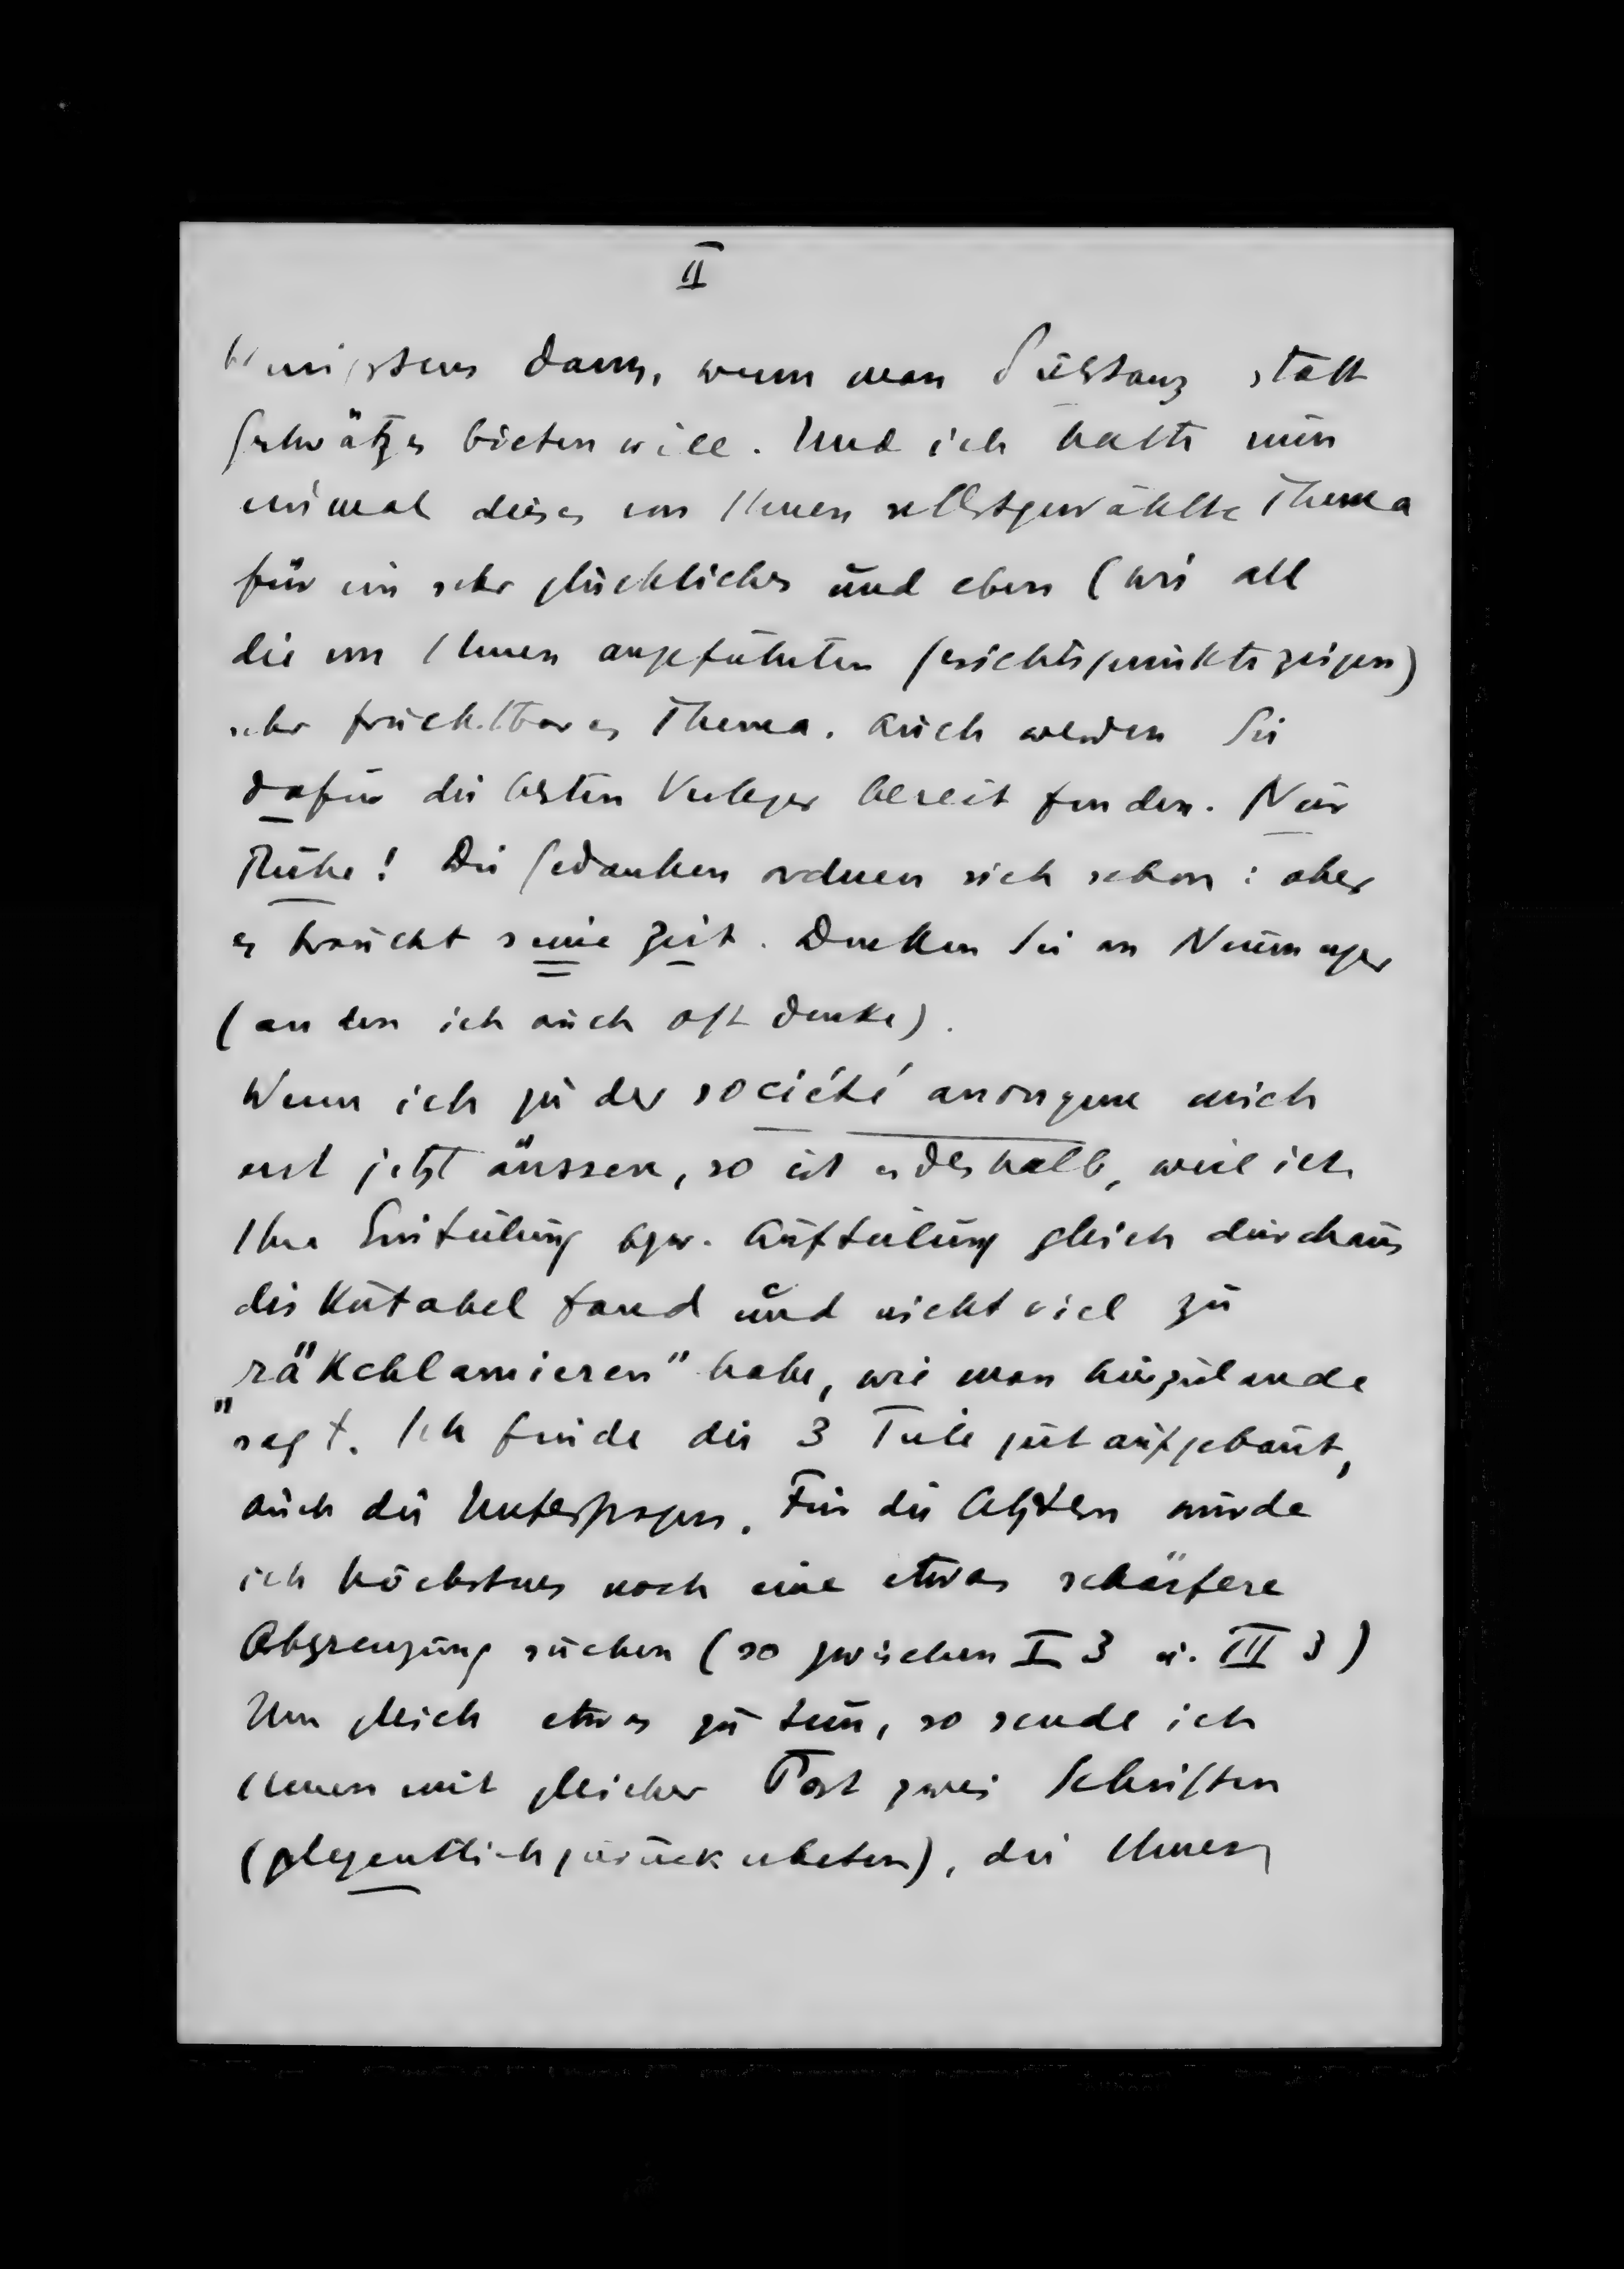 II
wenigstens dann, wenn man Substanz statt
Geschwätzes bieten will. Und ich halte nun
einmal dieses von Ihnen selbstgewählte Thema
für ein sehr glückliches und eben (wie all
die von Ihnen angeführten Gesichtspunkte zeigen)
sehr fruchtbares Thema. Auch werden Sie
dafür die besten Verleger bereit finden. Nur
Ruhe! Die Gedanken ordnen sich schon: aber
es braucht seine Zeit. Denken Sie an Neumeyer
(an den ich auch oft denke).
Wenn ich zu der société anonyme mich
erst jetzt äussere, so ist es deshalb, weil ich
Ihre Einteilung bzw. Aufteilung gleich durchaus
diskutabel fand und nicht viel zu
"räkchlamieren" habe, wie man hierzulande
sagt. Ich finde die 3 Teile gut aufgebaut,
auch die Unterfragen. Für die  würde
ich höchstens noch eine etwas schärfere
Abgrenzung suchen (so zwischen I 3 u. III 3)
Um gleich etwas zu tun, so sende ich
Ihnen mit gleicher Post zwei Schriften
(gelegentlich zurückerbeten), die Ihnen